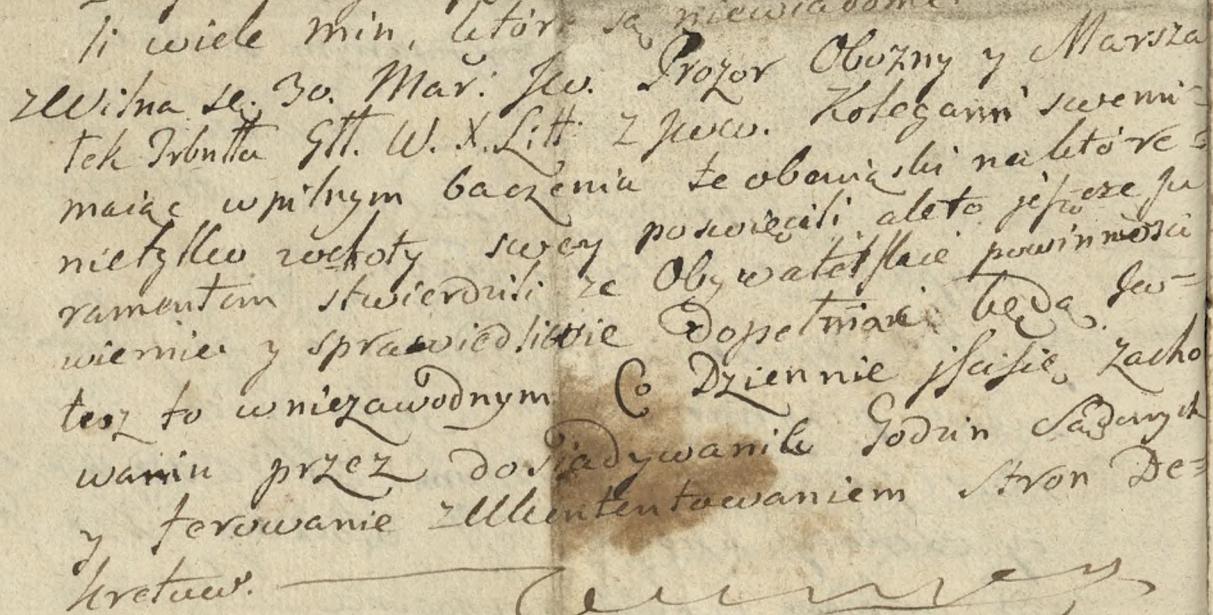 li wiele min, którę są niewiadome.
z Wilna de. 30. Mar: Jw. Prozor Oboźny y Marsza
łek Trbnłła Głł. W. X. Litt: z Jww. Kolegami swemi
maiąc w pilnym baczeniu te obowiąski na które=
nietylko ochoty swey poswięcili ale to jeszcze ju
ramentem stwierdzili że Obywatelskie powinności
wiernie y sprawiedliwie Dopełniać będą. Jw=
tesz to w niezawodnym Co Dziennie jsciśię zacho
waniu przez dosiadywanie Godzin Sądowych
y ferowanie z Ukontentowaniem Stron De=
kretuw.